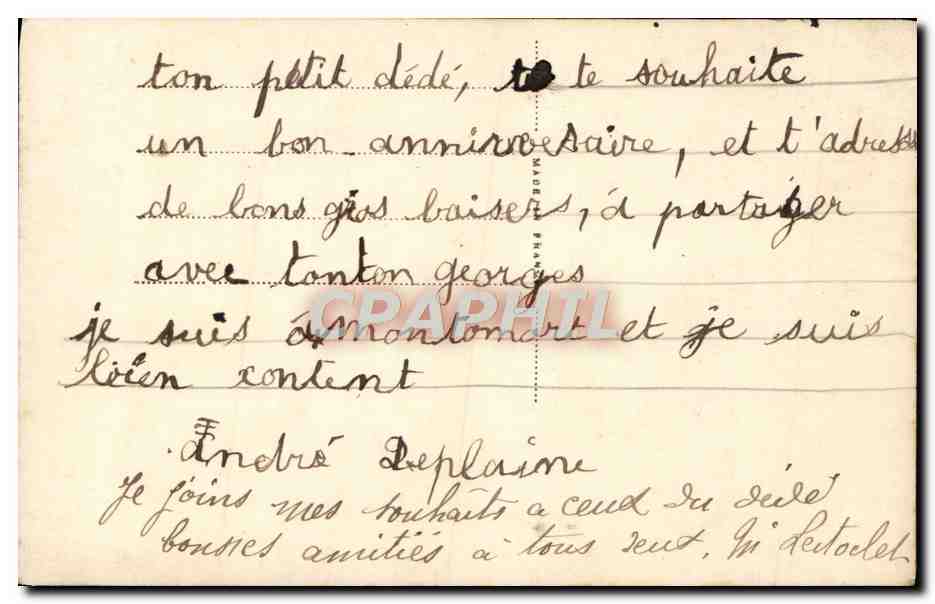 ton petit dédé, te souhaite
un bon annirversaire, et t'adresse
de bons gros baisers, à partager
avec tonton georges
je suis à Montomart et je suis
bien content
André Deplaine
Je joins mes souhaits a ceux du dédé
bonnes amitiés à tous deux. M
MADE IN FRANCE
CPAPHIL